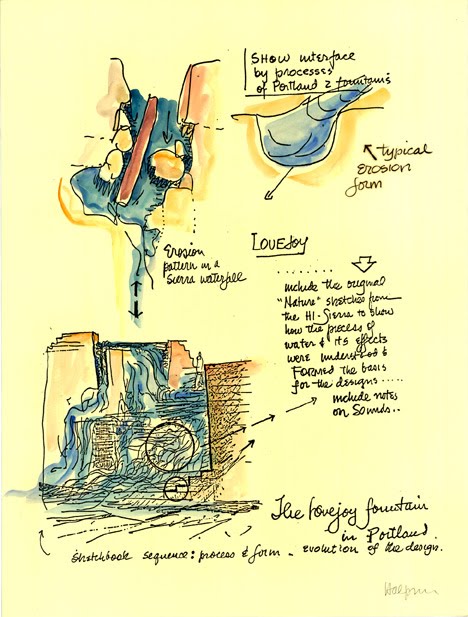 SHOW interface
by processes
of Portland 2 fountains
typical
Erosion
form
Erosion
pattern in a
Sierra waterfall
LOVEJOY
include the original
"Nature" sketches from
the HI-Sierra to show
how the process of
water & its effects
were understood &
FORMED the basis
for the designs .....
include notes
on Sounds..
The Lovejoy fountain
in Portland.
Sketchbook sequence: process & form - evolution of the design.
Halprin